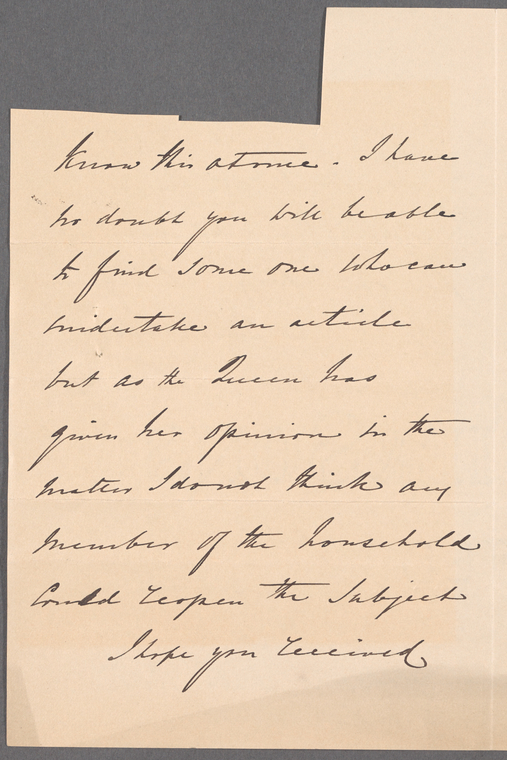 know this at once. I have
no doubt you will be able
to find some one who can
undertake an article
but as the Queen has
given her opinion in the
matter I do not think any
member of the household
could reopen the subject
I hope you received